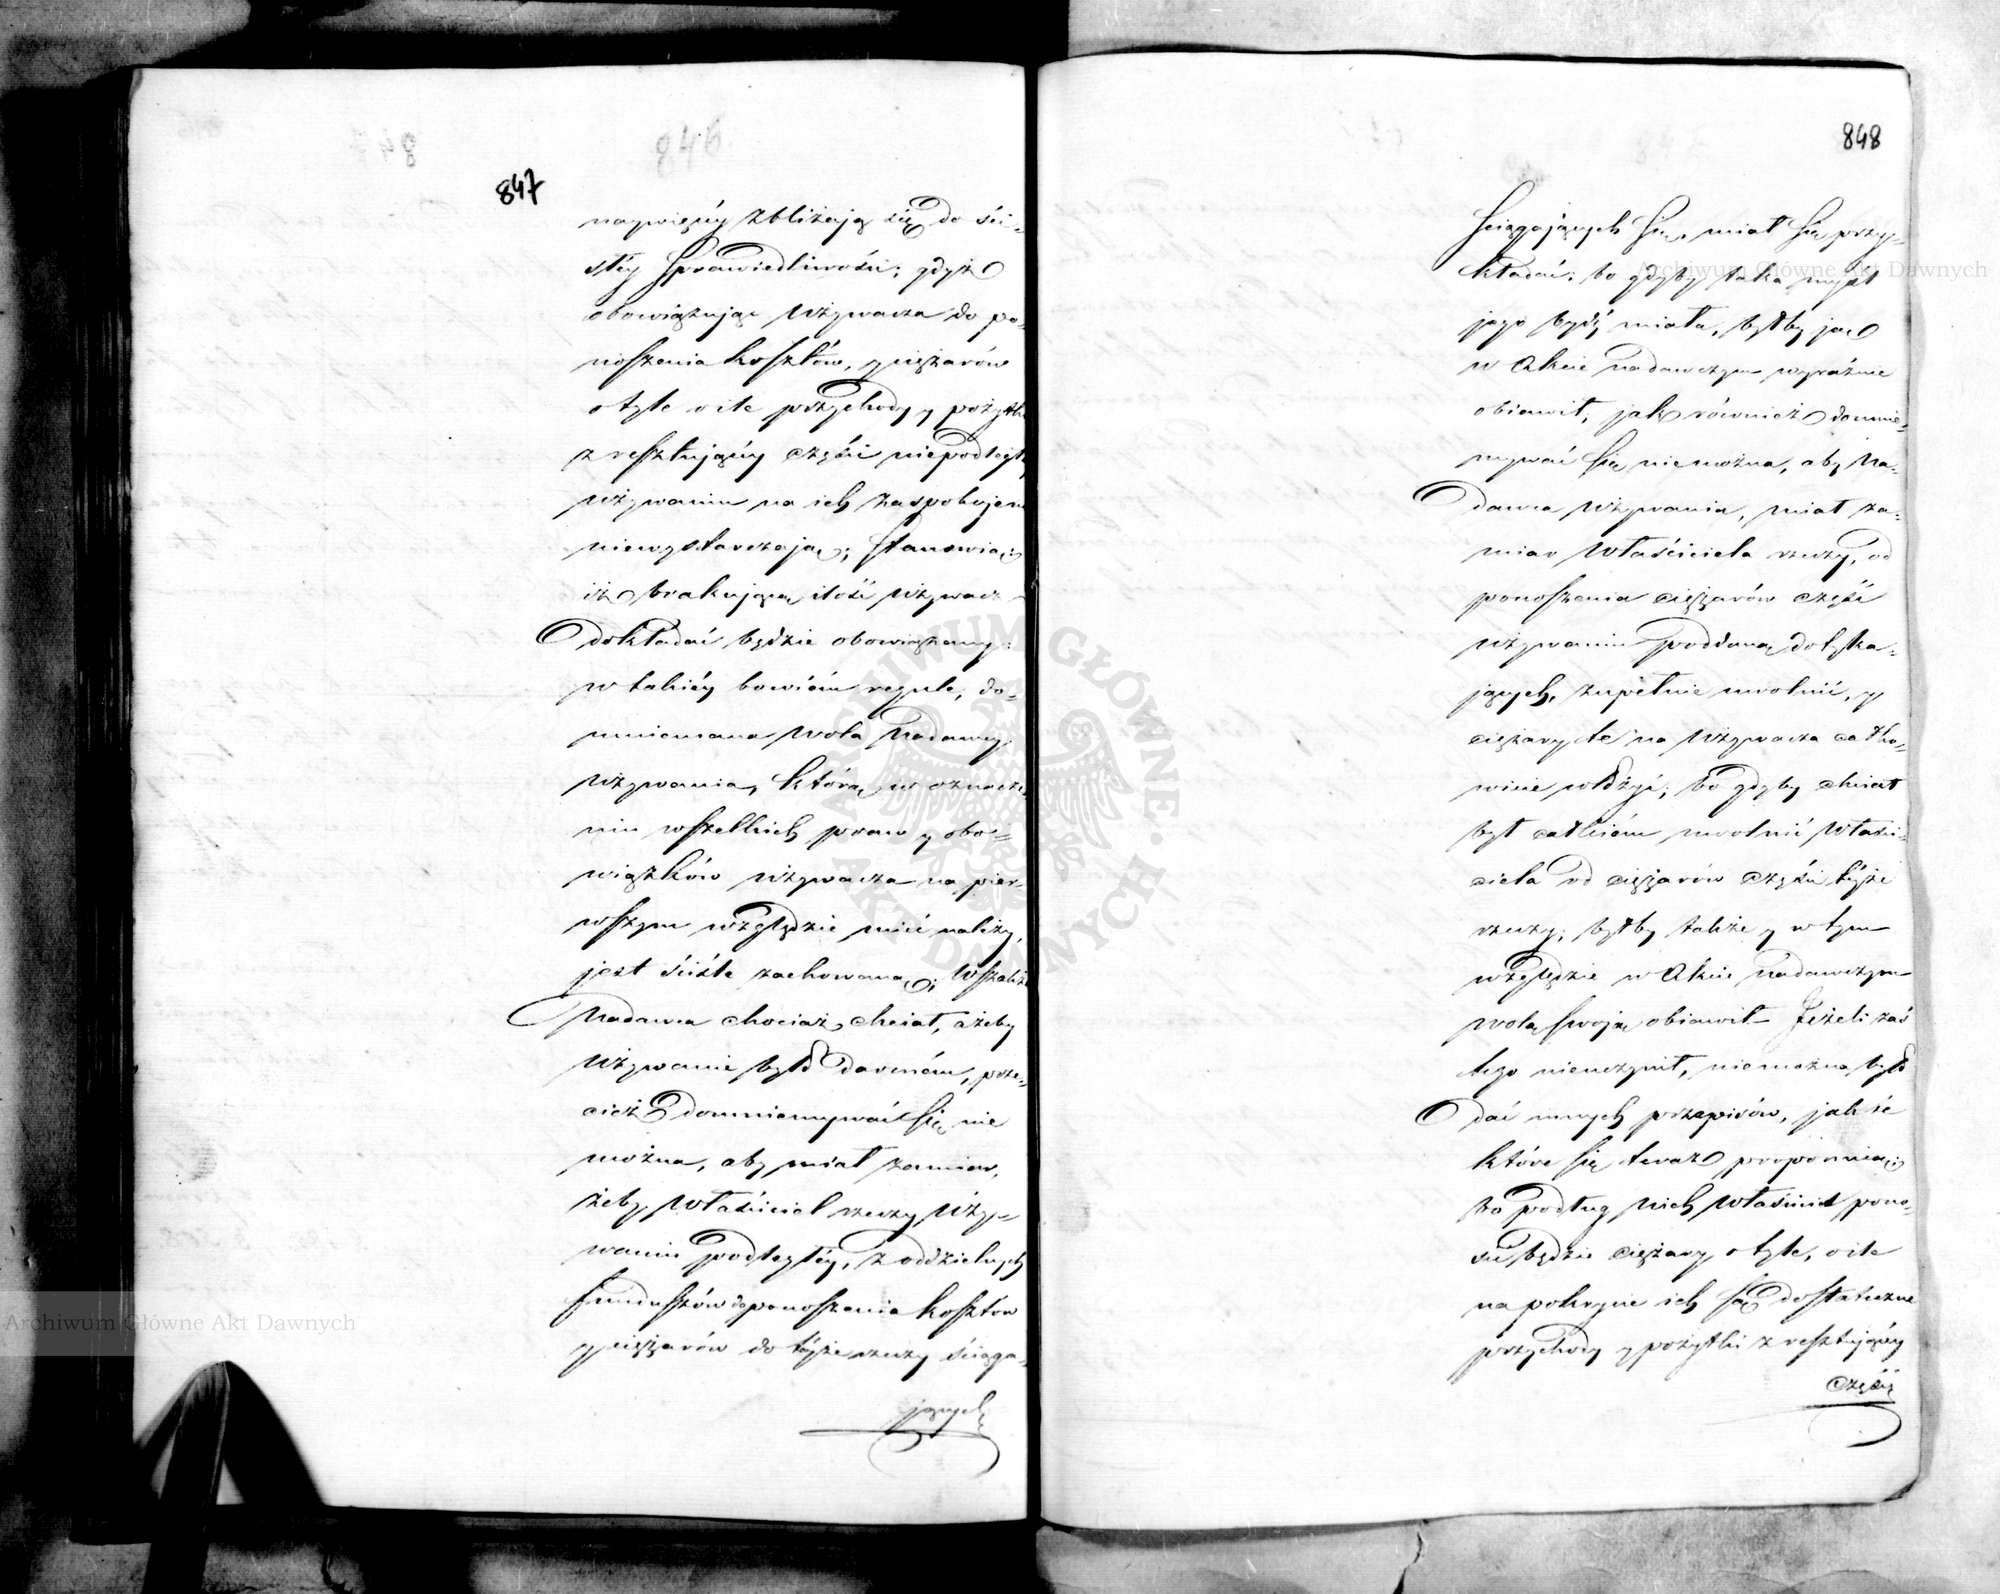 847
naywięcéy zbliżają się do ści-
słéy sprawiedliwości; gdyż
obowiązując Używacza do po-
noszenia kosztów, y ciężarów
o tyle o ile przychody y pożytki
z resztującéy części niepodległéy
używaniu na ich zaspokojenie
niewystarczają; stanowią:
iż brakującą ilość Używacz
dokładać będzie obowiązany:
w takiéy bowiém regule, do-
mniemana wola Nadawcy
używania, którą w oznacze-
niu wszelkich praw y obo-
wiązków używacza na pier-
wszym względzie mieć należy,
jest ściśle zachowaną; Wszakże
Nadawca chociaż chciał, ażeby
Używanie było darmém, prze-
cież domniemywać się nie
można, aby miał zamiar,
żeby Właściciel rzeczy Uży-
waniu podległéy, z oddzielnych
funduszów do ponoszenia kosztów
y ciężarów do téyże rzeczy ściąga-
jących
848
ściągających się, miał się przy-
kładać; bo gdyby taka myśl
jego bydź miała, byłby ją
w Akcie nadawczym wyraźnie
obiawił; jak również domnie-
mywać się niemożna, aby Na-
dawca używania, miał za-
miar Właściciela rzeczy, od
ponoszenia ciężarów część
używaniu poddaną dotyka-
jących, zupełnie uwolnić, y
ciężary te na Używacza całko-
wicie włożyć; bo gdyby chciał
był całkiém uwolnić Właści-
ciela od ciężarów części téyże
rzeczy; byłby także y w tym
względzie w Akcie nadawczym
wolą swoją obiawił. Jeżeli zaś
tego nieuczynił, niemożna było
dać innych przepisów, jak te
które się teraz proponują;
bo podług nich Właściciel pono-
sić będzie ciężary o tyle, o ile
na pokrycie ich są dostateczne
przychody y pożytki z resztującéy
części
Archiwum Główne Akt Dawnych
Archiwum Główne Akt Dawnych
ARCHIWUM GŁÓWNE AKT DAWNYCH